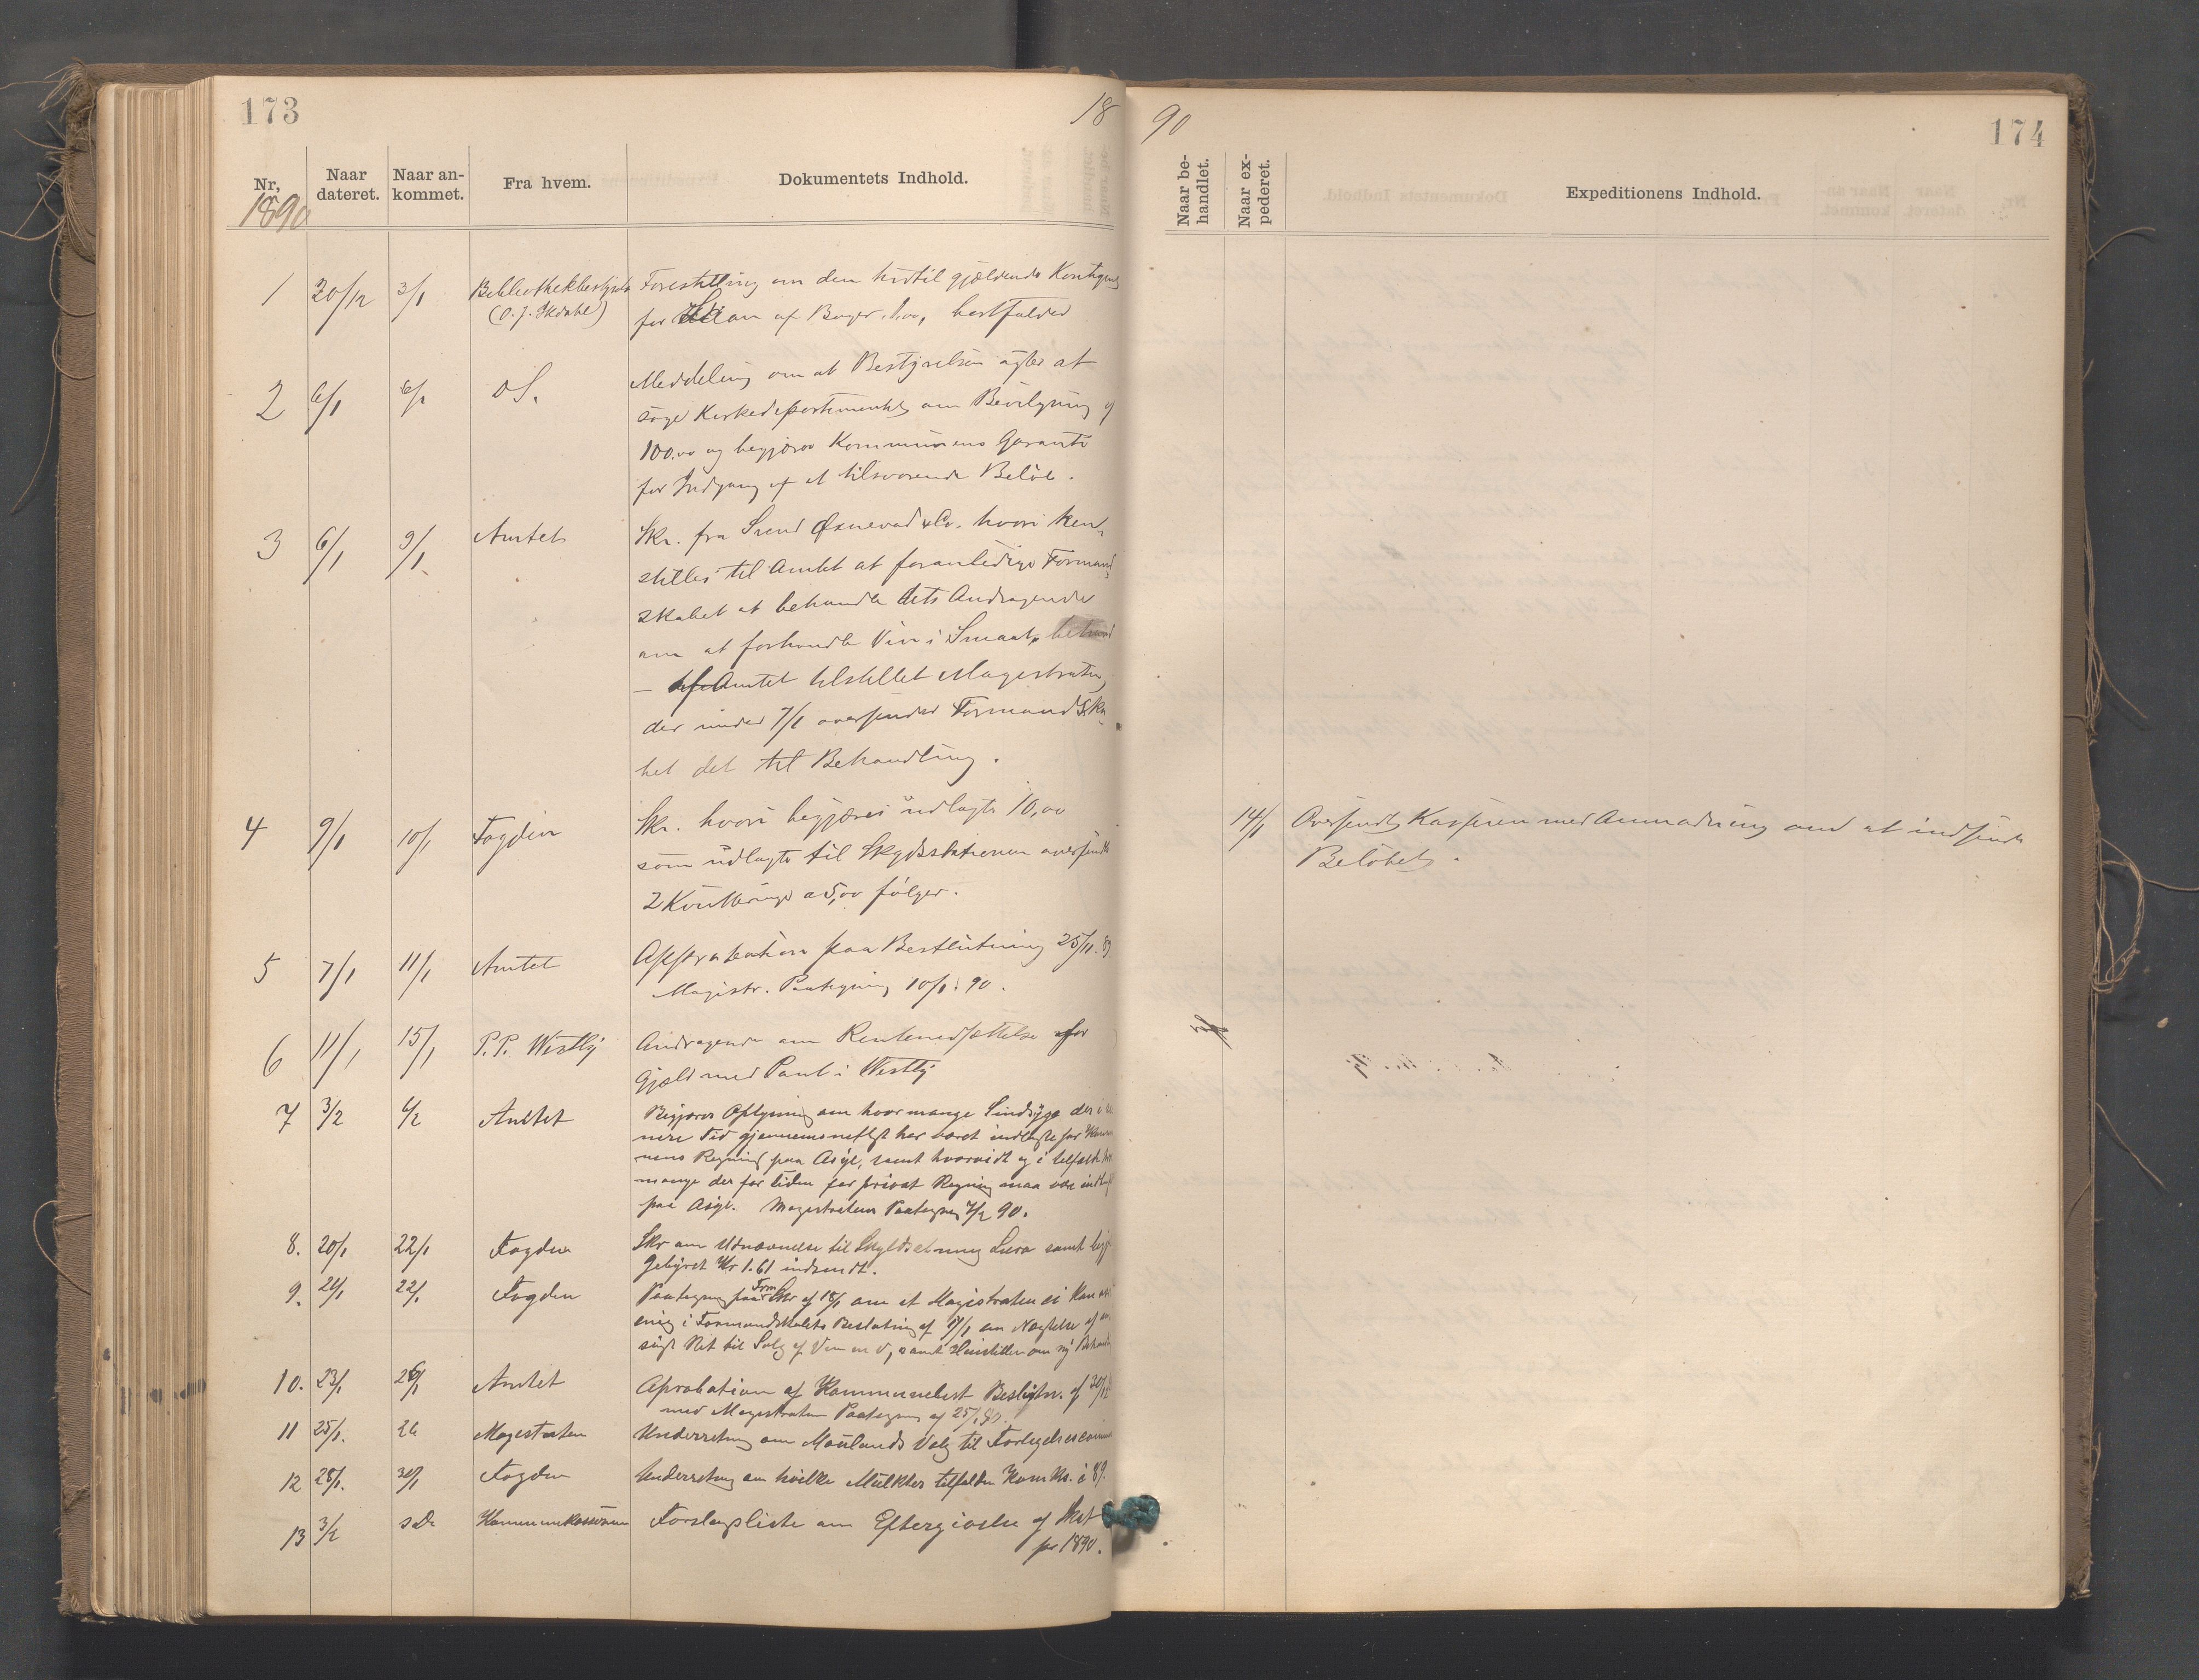 173
18
Nr,
Naar dateret.
Naar ankommet.
Fra hvem.
Dokumentets Indhold.
1890
1 30/12 3/1 Bibliothekbestyrelse Forestilling om den hidtil gjældende Kontigent
(O. J. Skdahl) for Laan af Bøger, 1,00, bortfalder
2 6/1 6/1 dS. Meddeling om at Bestyrelsen agter at
søge Kirkedepartementet om Bevilgning af
100.00 og begjærer Kommunens Garanti
for Indgang af et tilsvarende Beløb.
3 6/1 9/1 Amtet Skr. fra Svend Øxnevad & Co. hvori hen-
stilles til Amtet at foranledige Formand-
skabet at behandle dets Andragende
om at forhandle Vin i Smaat,
— Amtet tilstillet Magistraten,
der under 7/1 oversender Formandska-
bet det til Behandling.
4 9/1 10/1 Fogden Skr. hvori begjæres udlagte 10,00
som udlagte til Skydsstationen oversendt
2 Kvitteringer a 5,00 følger.
5 7/1 11/1 Amtet Approbation paa Beslutning 25/11. 89
Magistr. Paategning 10/1. 90.
6 11/1 15/1 P. P. Westly Andragende om Rentenedsættelse for
Gjæld med Pant i Westly
7 3/2 6/2 Amtet Begjærer Oplysning om hvor mange Sindsyge der i
nere Tid gjennemsnitligt har været indlagte for Kommu
nens Regning paa Asyl, samt hvorvidt og i tilfælde hvor
mange der for tiden for privat Regning maa være indlagt
paa Asyl. Magistratens Paategning 4/2 90.
8. 20/1 22/1 Fogden Skr om Udnævnelse til Skyldsetning Lura samt
Gebyret Kr 1.61 indsendt.
9. 21/1 22/1 Fogden Paategning paa Form Skr af 18/1 om at Magistraten ei kan
enig i Formandskabets Beslutning af om Nægtelse af
søgt Ret til Salg af Vin m v, samt Henstiller om ny Behandl
10. 23/1 26/1 Amtet Aprobation af Kommunebest Beslutn. af 30/12
med Magistraten Paategning af 25/1 90.
11 25/1. 26 Magistraten Underretning om Maulands Valg til
12 28/1. 30/1 Fogden Underretning om hvilke Mulkter tilfalden Komks. i 89.
13 3/2 s D. Kommunekasseren Forslagsliste om Eftergivelse af Skat
for 1890.
90
174
Naar behandlet.
Naar expederet.
Expeditionens Indhold.
14/1 Oversendt Kasseren med Anmodning om at indsende
Beløbet.